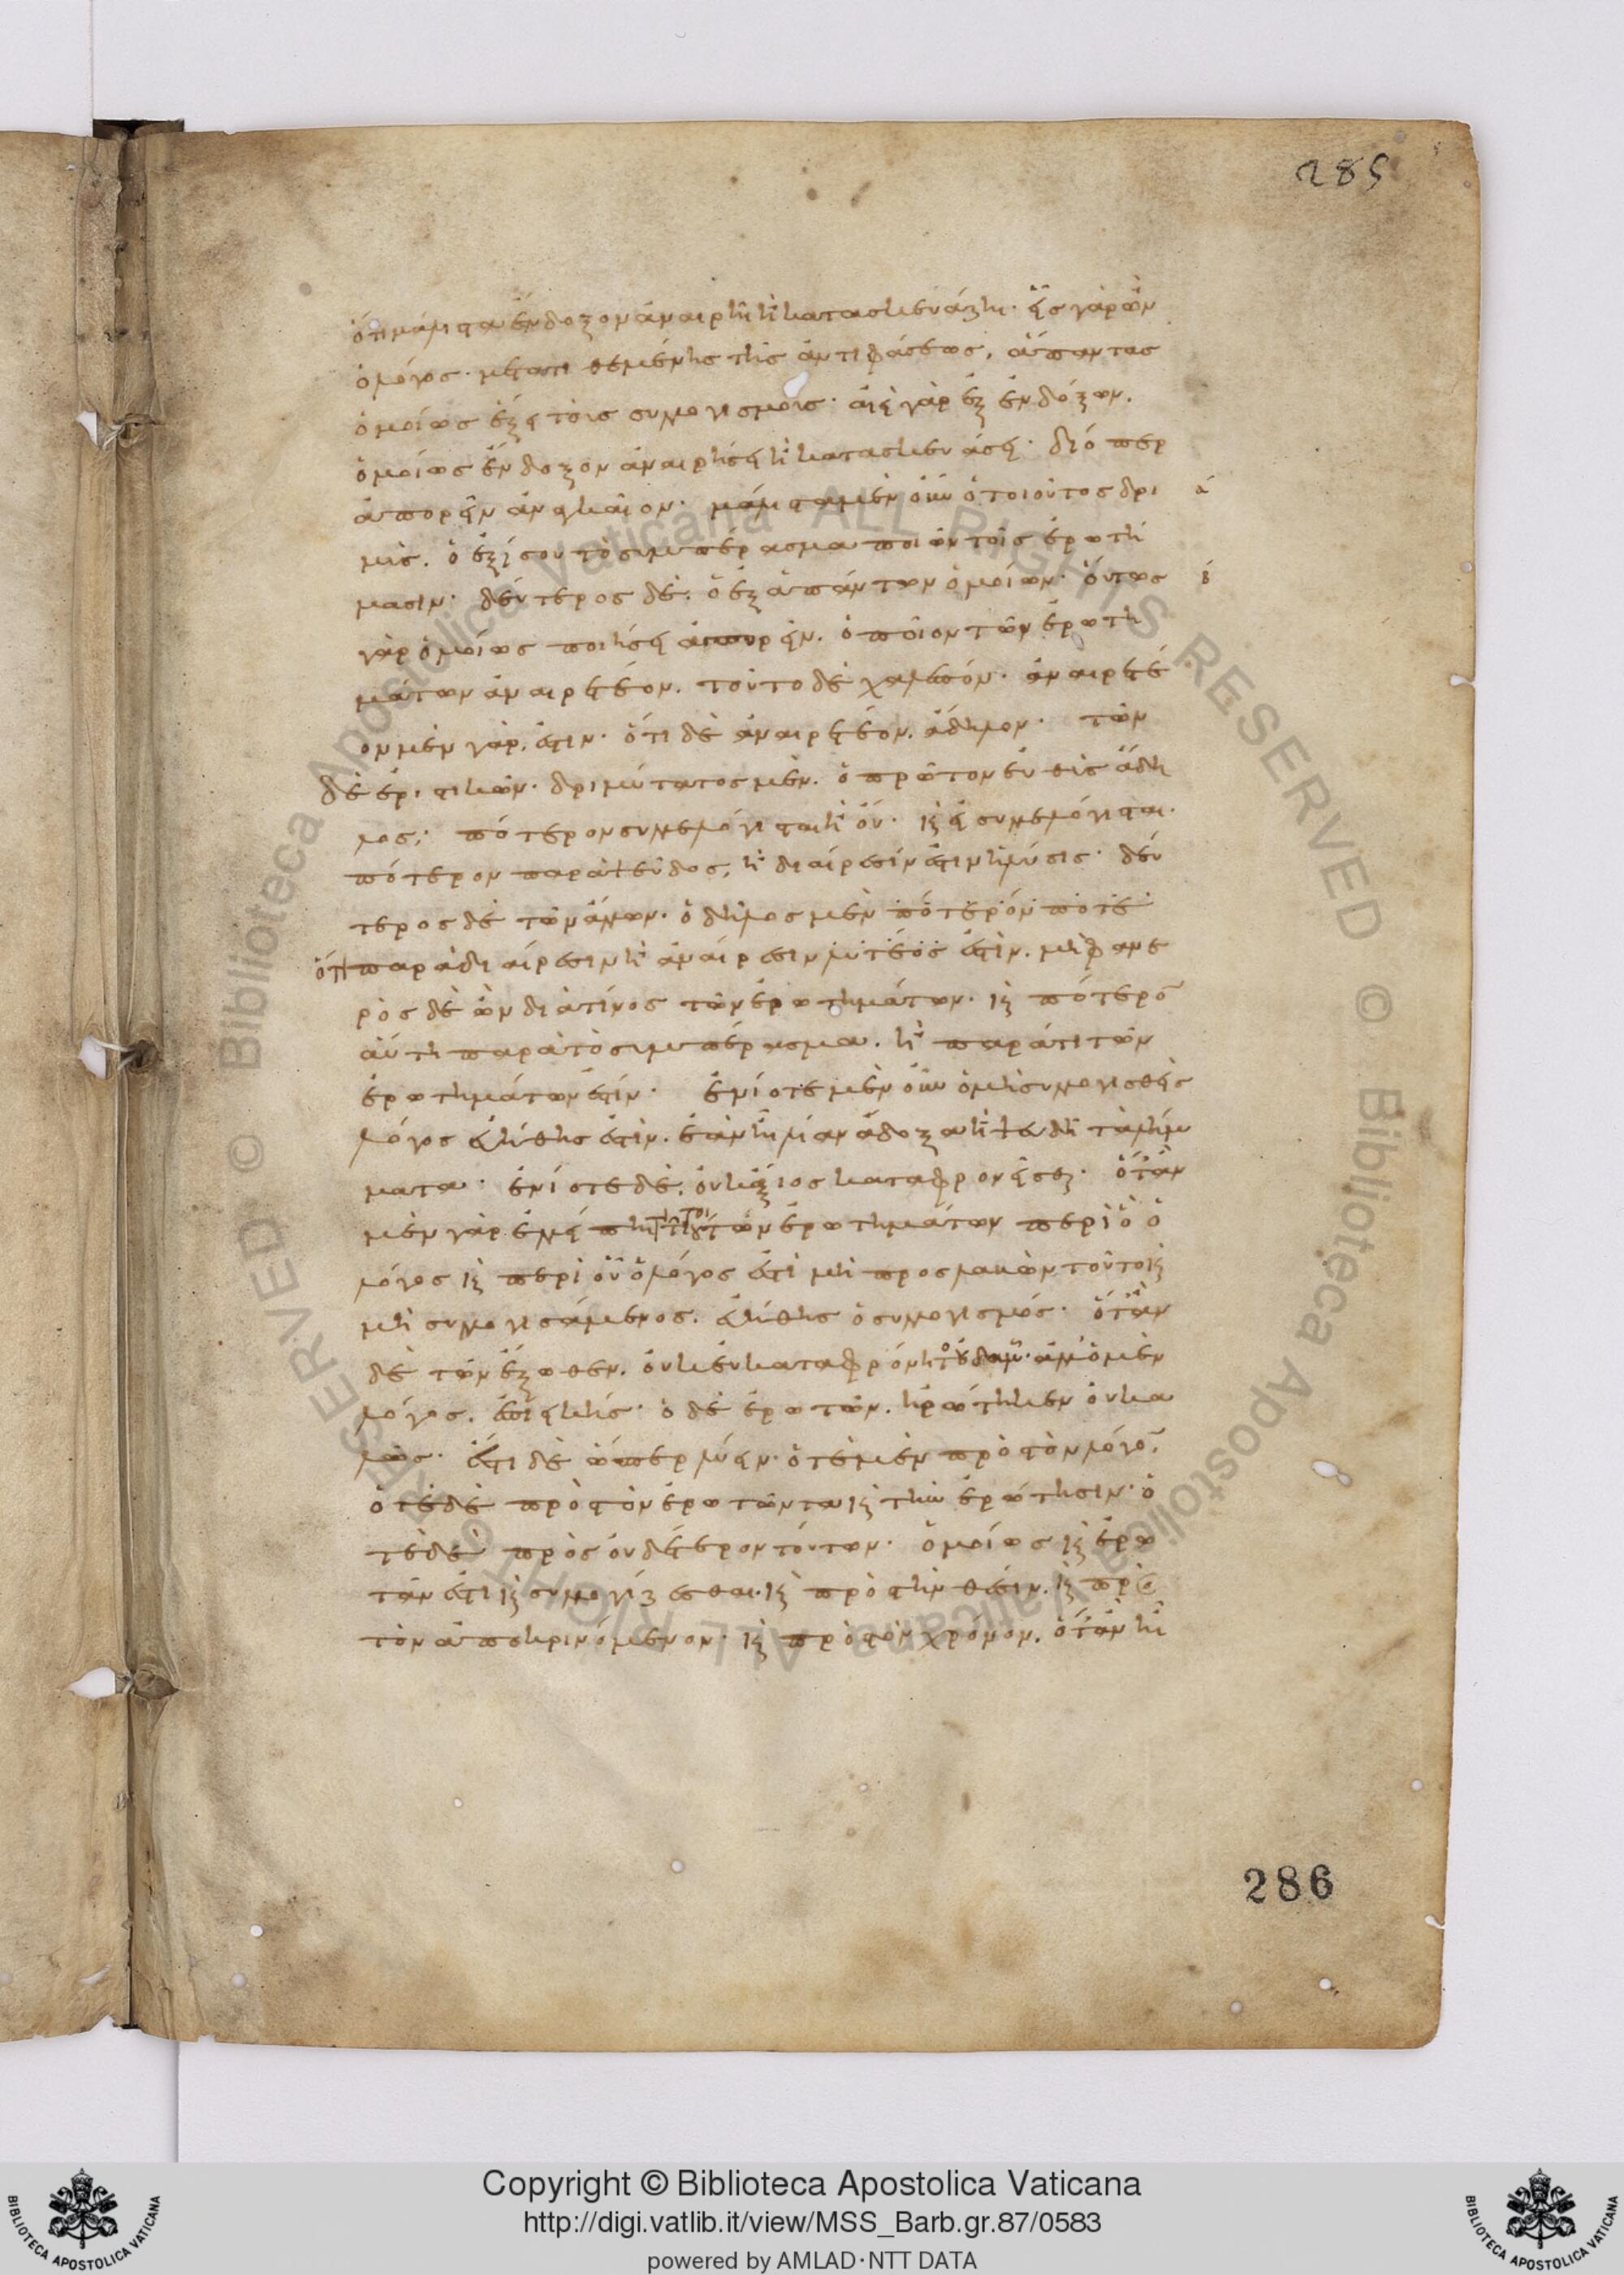 285
ὅτι μάλιστα ἔνδοξον ἀναιρῆ ἢ κατασκευάζη· εἷς γὰρ ὢν
ὁ λόγος· μετατιθεμένης τῆς ἀντιφάσεως, ἅπαντας
ὁμοίως ἕξει τοὺς συλλογισμούς· ἀεὶ γὰρ ἐξ ἐνδόξων.
ὁμοίως ἔνδοξον ἀναιρήσει ἢ κατασκευάσει· διόπερ
ἀπορεῖν ἀναγκαῖον· μάλιστα μὲν οὖν ὁ τοιοῦτος δρι
α
μύς. ὁ ἐξίσου τὸ συμπέρασμα ποιῶν τοῖς ἐρωτή
μασιν· δεύτερος δὲ. ὁ ἐξ ἁπάντων ὁμοίων· οὕτως
β
γὰρ ὁμοίως ποιήσει ἀπορεῖν. ὁποῖον τῶν ἐρωτη
μάτων ἀναιρετέον. τοῦτο δὲ χαλεπόν· ἀναιρετέ
ον μὲν γάρ ἐστιν· ὅτι δὲ ἀναιρετέον, ἄδηλον· τῶν
δὲ ἐριστικῶν· δριμύτατος μὲν. ὁ πρῶτον εὐθὺς ἄδη
λος· πότερον συλλελόγισται ἢ οὔ· καὶ εἰ συλλελόγισται.
πότερον παρὰ ψεῦδος, ἢ διαίρεσίν ἐστιν ἡ λύσις· δεύ
τερος δὲ τῶν ἄλλων· ὁ δῆλος μὲν πότερόν ποτε
ὅτι παρὰ διαίρεσιν ἢ ἀναίρεσιν λυτέος ἐστὶν. μὴ φανε
ρὸς δὲ ὢν διὰ τίνος τῶν ἐρωτημάτων· καὶ πότερο̄
αὕτη παρὰ τὸ συμπέρασμα. ἢ παρά τι τῶν
ἐρωτημάτων ἐστίν· ἐνίοτε μὲν οὖν ὁ μὴ συλλογισθεὶς
λόγος εὐήθης ἐστὶν. ἐὰν ἦ λίαν ἄδοξα ἢ ψευδῆ τὰ λήμ
ματα· ἐνίοτε δὲ, οὐκ ἄξιος καταφρονεῖσθαι· ὅταν
μὲν γὰρ ἐλλείπη τι τῶν τοιούτων ἐρωτημάτων περὶ ὃ ὁ
λόγος καὶ περὶ οὗ ὁ λόγος ἐστὶ μὴ προσλαβὼν τοῦτο καὶ
μὴ συλλογισάμενος. εὐήθης ὁ συλλογισμός· ὅταν
δὲ τῶν ἔξωθεν. οὐκ εὐκαταφρόνητος οὐδαμῶς· ἀλλ' ὁ μὲν
λόγος. ἐπιεικής· ὁ δὲ ἐρωτῶν. ἠρώτηκεν οὐ κα
λῶς· ἔστι δὲ ὥσπερ λύειν· ὁτὲ μὲν πρὸς τὸν λόγο̄,
ὁτὲ δὲ πρὸς τὸν ἐρωτῶντα καὶ τὴν ἐρώτησιν· ὁ
τὲ δὲ πρὸς οὐδέτερον τούτων· ὁμοίως καὶ ἐρω
τᾶν ἔστι καὶ συλλογίζεσθαι· καὶ πρὸς τὴν θέσιν. καὶ πρὸς
τὸν ἀποκρινόμενον· καὶ πρὸς τὸν χρόνον. ὅταν ἦ
286
Copyright © Biblioteca Apostolica Vaticana
http://digi.vatlib.it/view/MSS_Barb.gr.87/0583
powered by AMLAD·NTT DATA